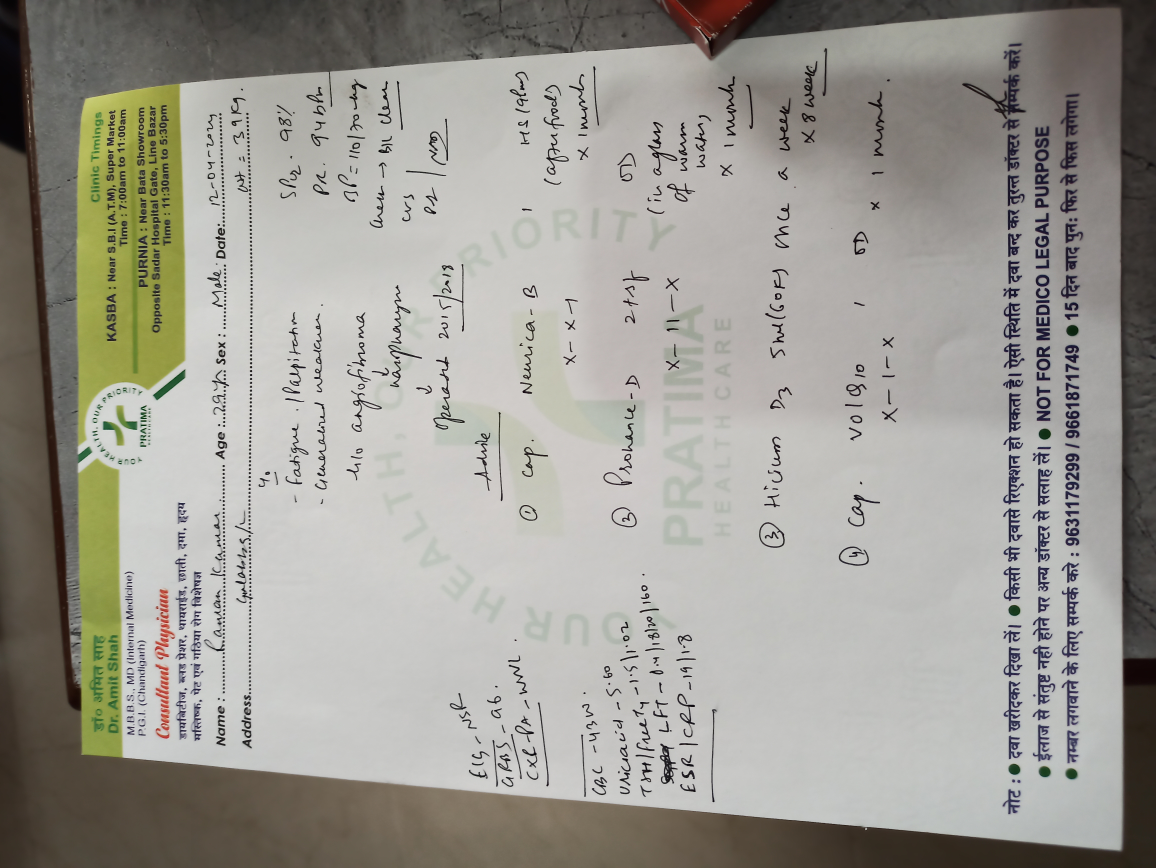 डॉ० अमित साह
Dr. Amit Shah
M.B.B.S., MD (Internal Medicine)
P.G.I. (Chandigarh)
Consultant Physician
डायबिटीज, ब्लड प्रेशर, थायराईड, छाती, दमा, हृदय
मस्तिष्क, पेट एवं गठिया रोग विशेषज्ञ
YOUR HEALTH, OUR PRIORITY
PRATIMA
HEALTHCARE
Clinic Timings
KASBA : Near S.B.I (A.T.M), Super Market
Time : 7:00am to 11:00am
PURNIA : Near Bata Showroom
Opposite Sadar Hospital Gate, Line Bazar
Time : 11:30am to 5:30pm
Name : Raman Kumar Age : 29 Sex : Male Date: 12-04-2024
Address Wt = 39 Kg.
- Fatigue / Palpitation
- Generalized weakness.
H/o angiofibroma
↓
nasopharynx
↓
operated 2015/2018
SPO2 - 98%
PR. 94 bpm
BP = 110/70 mmhg
Chest → B/L clear
CVS
PA / NAD
EKG - NSR
GRBS - 96.
CXR-PA - WNL
CBC -
Uric acid - 5.60
TSH/FreeT4 - 1.5/1.02
LFT - 0.4/18/20/160.
ESR/CRP - 19/1.8
Advice
① Cap. Neurica-B 1 HS
(after food)
X-X-1 x 1 month
② Prohance-D 2 tsf OD
(in a glass
of warm
water)
X-11-X x 1 month
③ D3 5ml (60K) once a week
x 8 week
④ Cap. Vol Q10 1 OD x 1 month.
X-1-X
YOUR HEALTH, OUR PRIORITY
PRATIMA
HEALTH CARE
नोट : ● दवा खरीदकर दिखा लें। ● किसी भी दवासे रिएक्शन हो सकता है। ऐसी स्थिति में दवा बन्द कर तुरन्त डॉक्टर से सम्पर्क करें।
● ईलाज से संतुष्ट नही होने पर अन्य डॉक्टर से सलाह लें। ● NOT FOR MEDICO LEGAL PURPOSE
● नम्बर लगवाने के लिए सम्पर्क करे : 9631179299 / 9661871749 ● 15 दिन बाद पुन: फिर से फिस लगेगा।